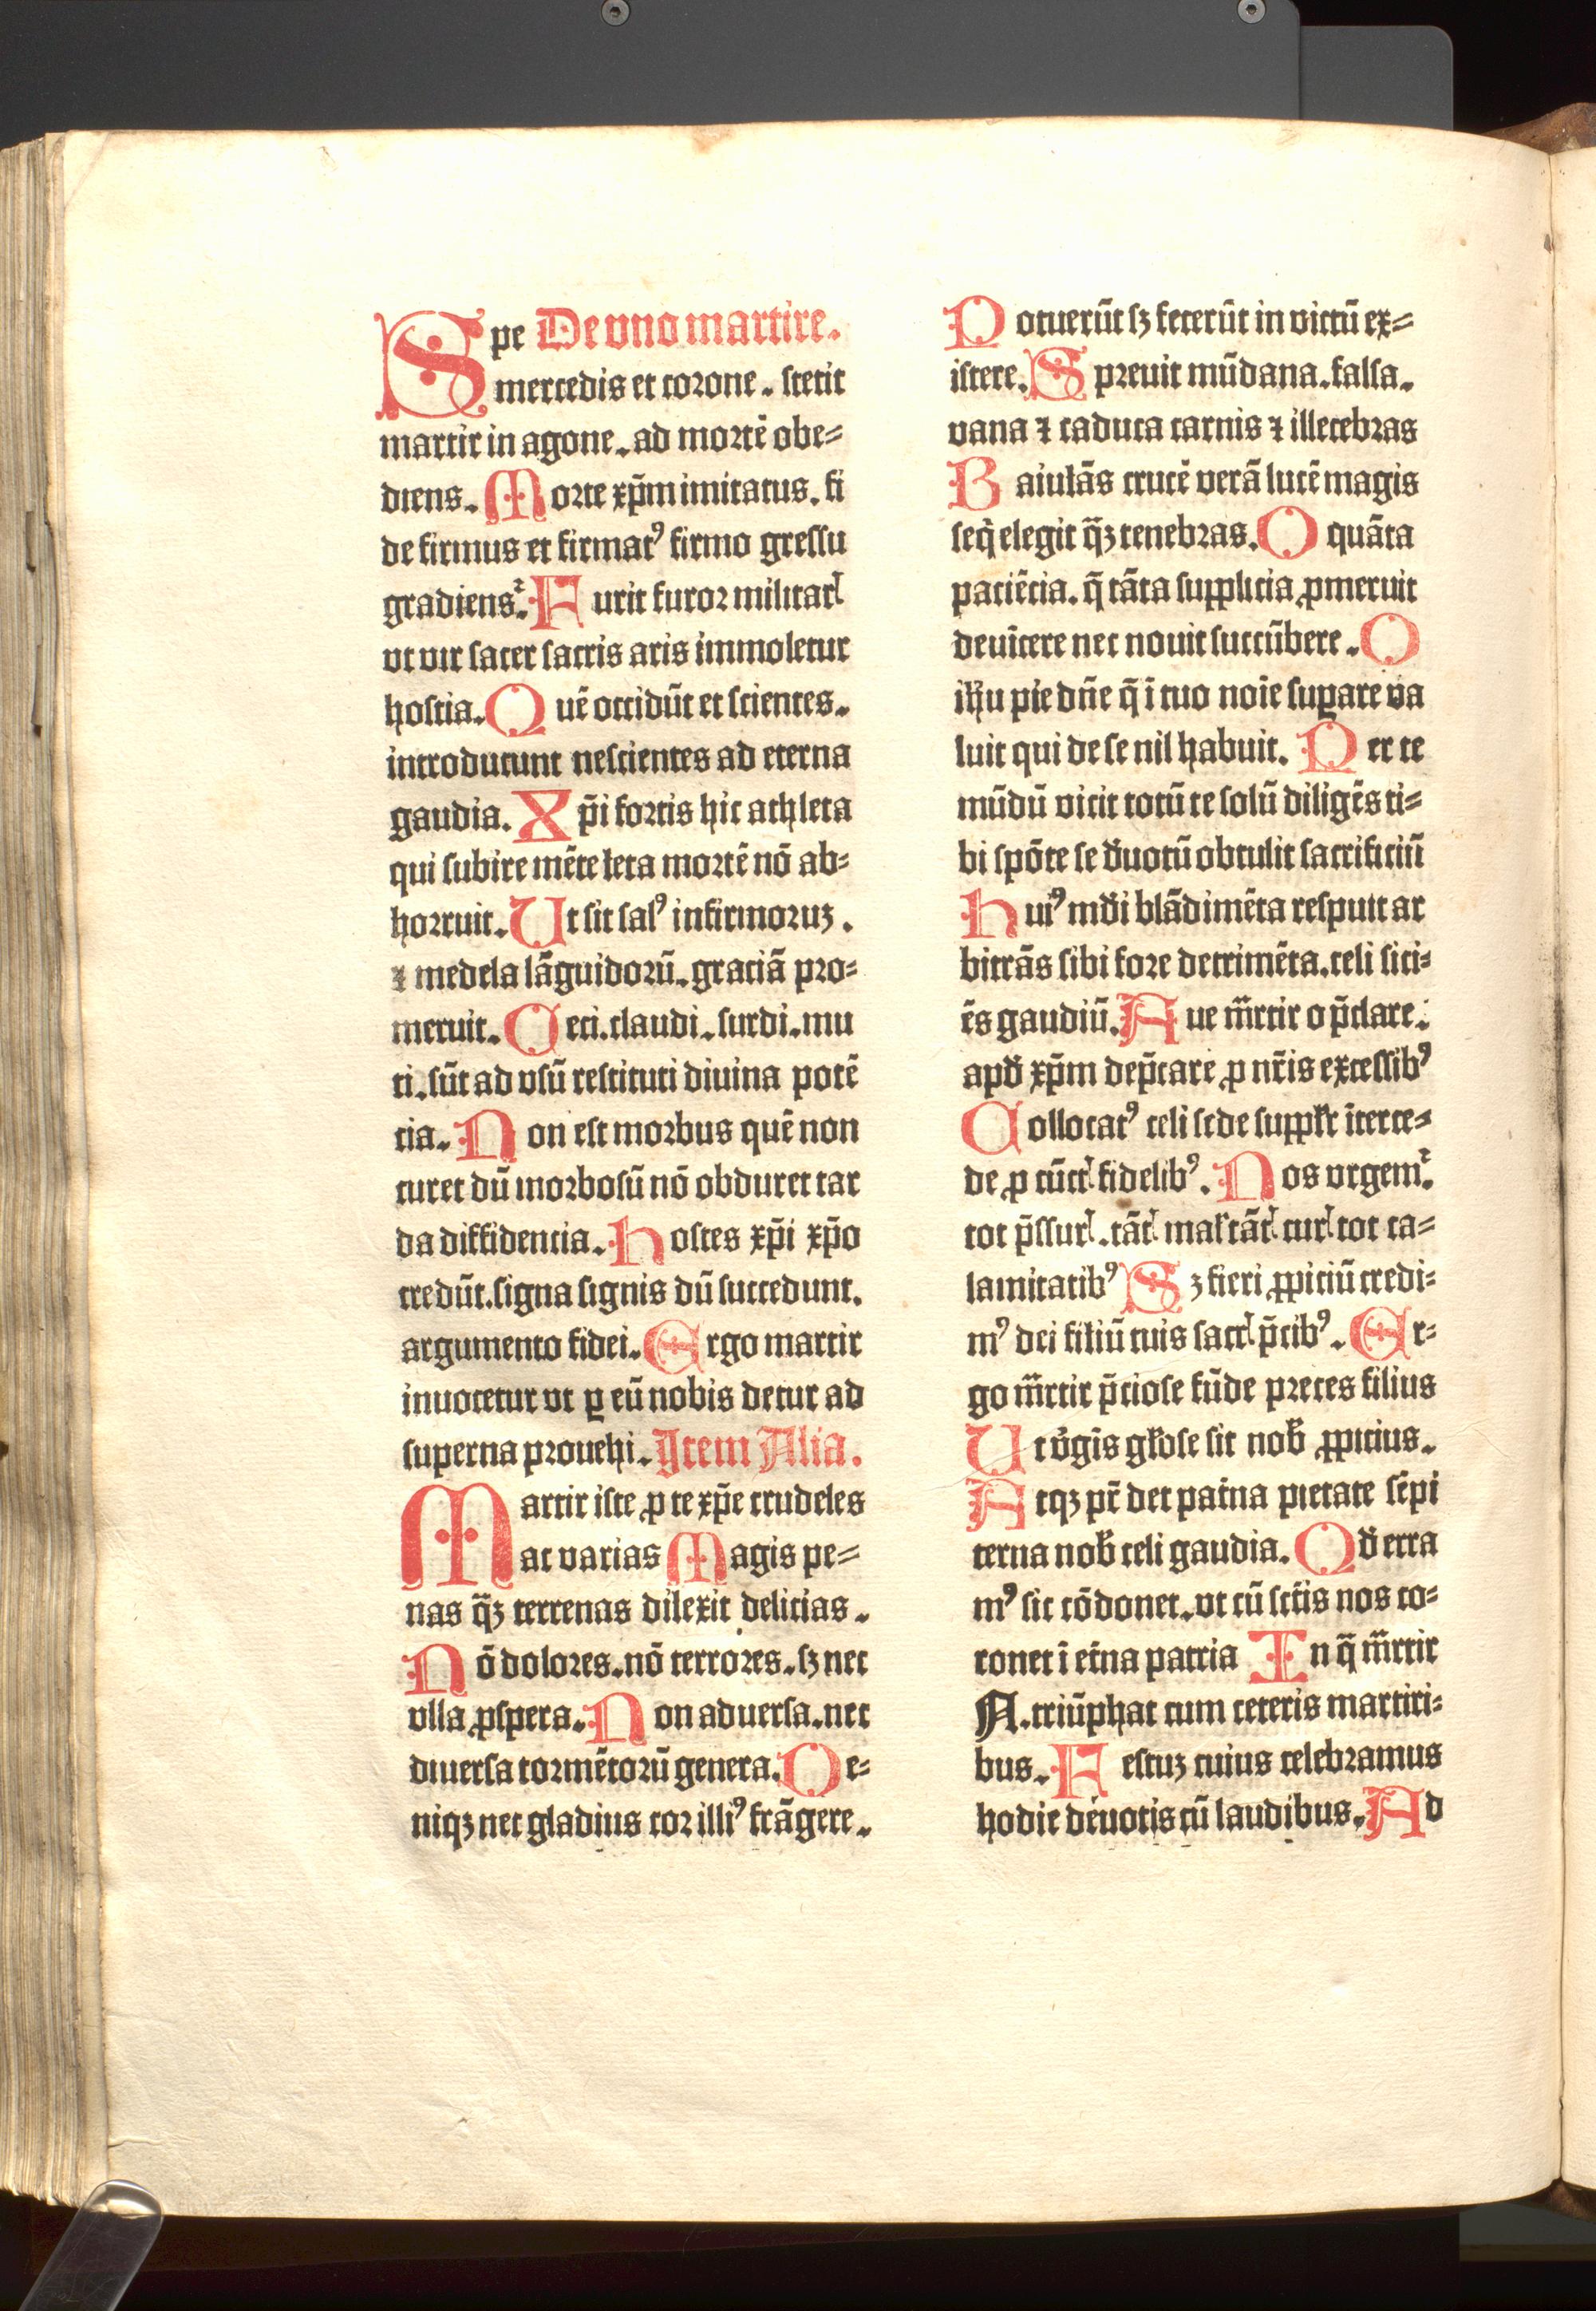 Spe De vno martire.
mercedis et corone. stetit
martir in agone. ad mortē obe=
diens. Morte xp̄m imitatus. fi
de firmus et firmatꝰ firmo gressu
gradiens. Furit furor militarꝭ
vt vir sacer sacris aris immoletur
hostia. Quē occidūt et scientes.
introducunt nescientes ad eterna
gaudia. Xp̄i fortis hic athleta
qui subire mēte leta mortē nō ab=
horruit. Ut sit salꝰ infirmoruz.
⁊ medela lāguidorū. graciā pro=
meruit. Ceci. claudi. surdi. mu
ti. sūt ad vsū restituti diuina potē
cia. Non est morbus quē non
curet dū morbosū nō obduret tar
da diffidencia. Hostes xp̄i xp̄o
credūt. signa signis dū succedunt.
argumento fidei. Ergo martir
inuocetur vt ꝑ eū nobis detur ad
superna prouehi. Item Alia.
Martir iste ꝓ te xp̄e crudeles
ac varias Magis pe=
nas q̄ꝫ terrenas dilexit delicias.
Nō dolores. nō terrores. sꝫ nec
vlla ꝓspera. Non aduersa. nec
diuersa tormētorū genera. De=
niqꝫ nec gladius cor illiꝰ frāgere.
Potuerūt sꝫ fecerūt inuictū ex=
istere. Spreuit mūdana. falsa.
vana ⁊ caduca carnis ⁊ illecebras
Baiulās crucē verā lucē magis
seq̄ elegit q̄ꝫ tenebras. O quāta
paciēcia. q̄ tāta supplicia ꝓmeruit
deuīcere nec nouit succūbere. O
ih̄u pie dn̄e q̄ ī tuo noīe suꝑare va
luit qui de se nil habuit. Per te
mūdū vicit totū te solū diligēs ti=
bi spōte se đuotū obtulit sacrificiū
Huiꝰ mđi blādimēta respuit ar
bitrās sibi fore detrimēta. celi sici=
ēs gaudiū. Aue m̄rtir o p̄clare:
apđ xp̄m dep̄care ꝓ nr̄is excessibꝰ
Collocatꝰ celi sede supplꝛ īterce=
de ꝓ cūctꝭ fidelibꝰ. Nos vrgem̄.
tot p̄ssurꝭ. tātꝭ mal̄ tātꝭ curꝭ tot ca=
lamitatibꝰ Sꝫ fieri ꝓpiciū credi=
mꝰ dei filiū tuis sacrꝭ p̄cibꝰ. Er=
go m̄rtir p̄ciose fūde preces filius
Ut v̄gīs gl̄ose sit nob̄ ꝓpicius.
Atqꝫ pr̄ det pat̄na pietate sēpi
terna nob̄ celi gaudia. Qđ erra
mꝰ sic cōdonet. vt cū sct̄is nos co=
ronet ī et̄na patria In q̄ m̄rtir
N. triūphat cum ceteris martiri=
bus. Festuꝫ cuius celebramus
hodie deuotis cū laudibus. Ad